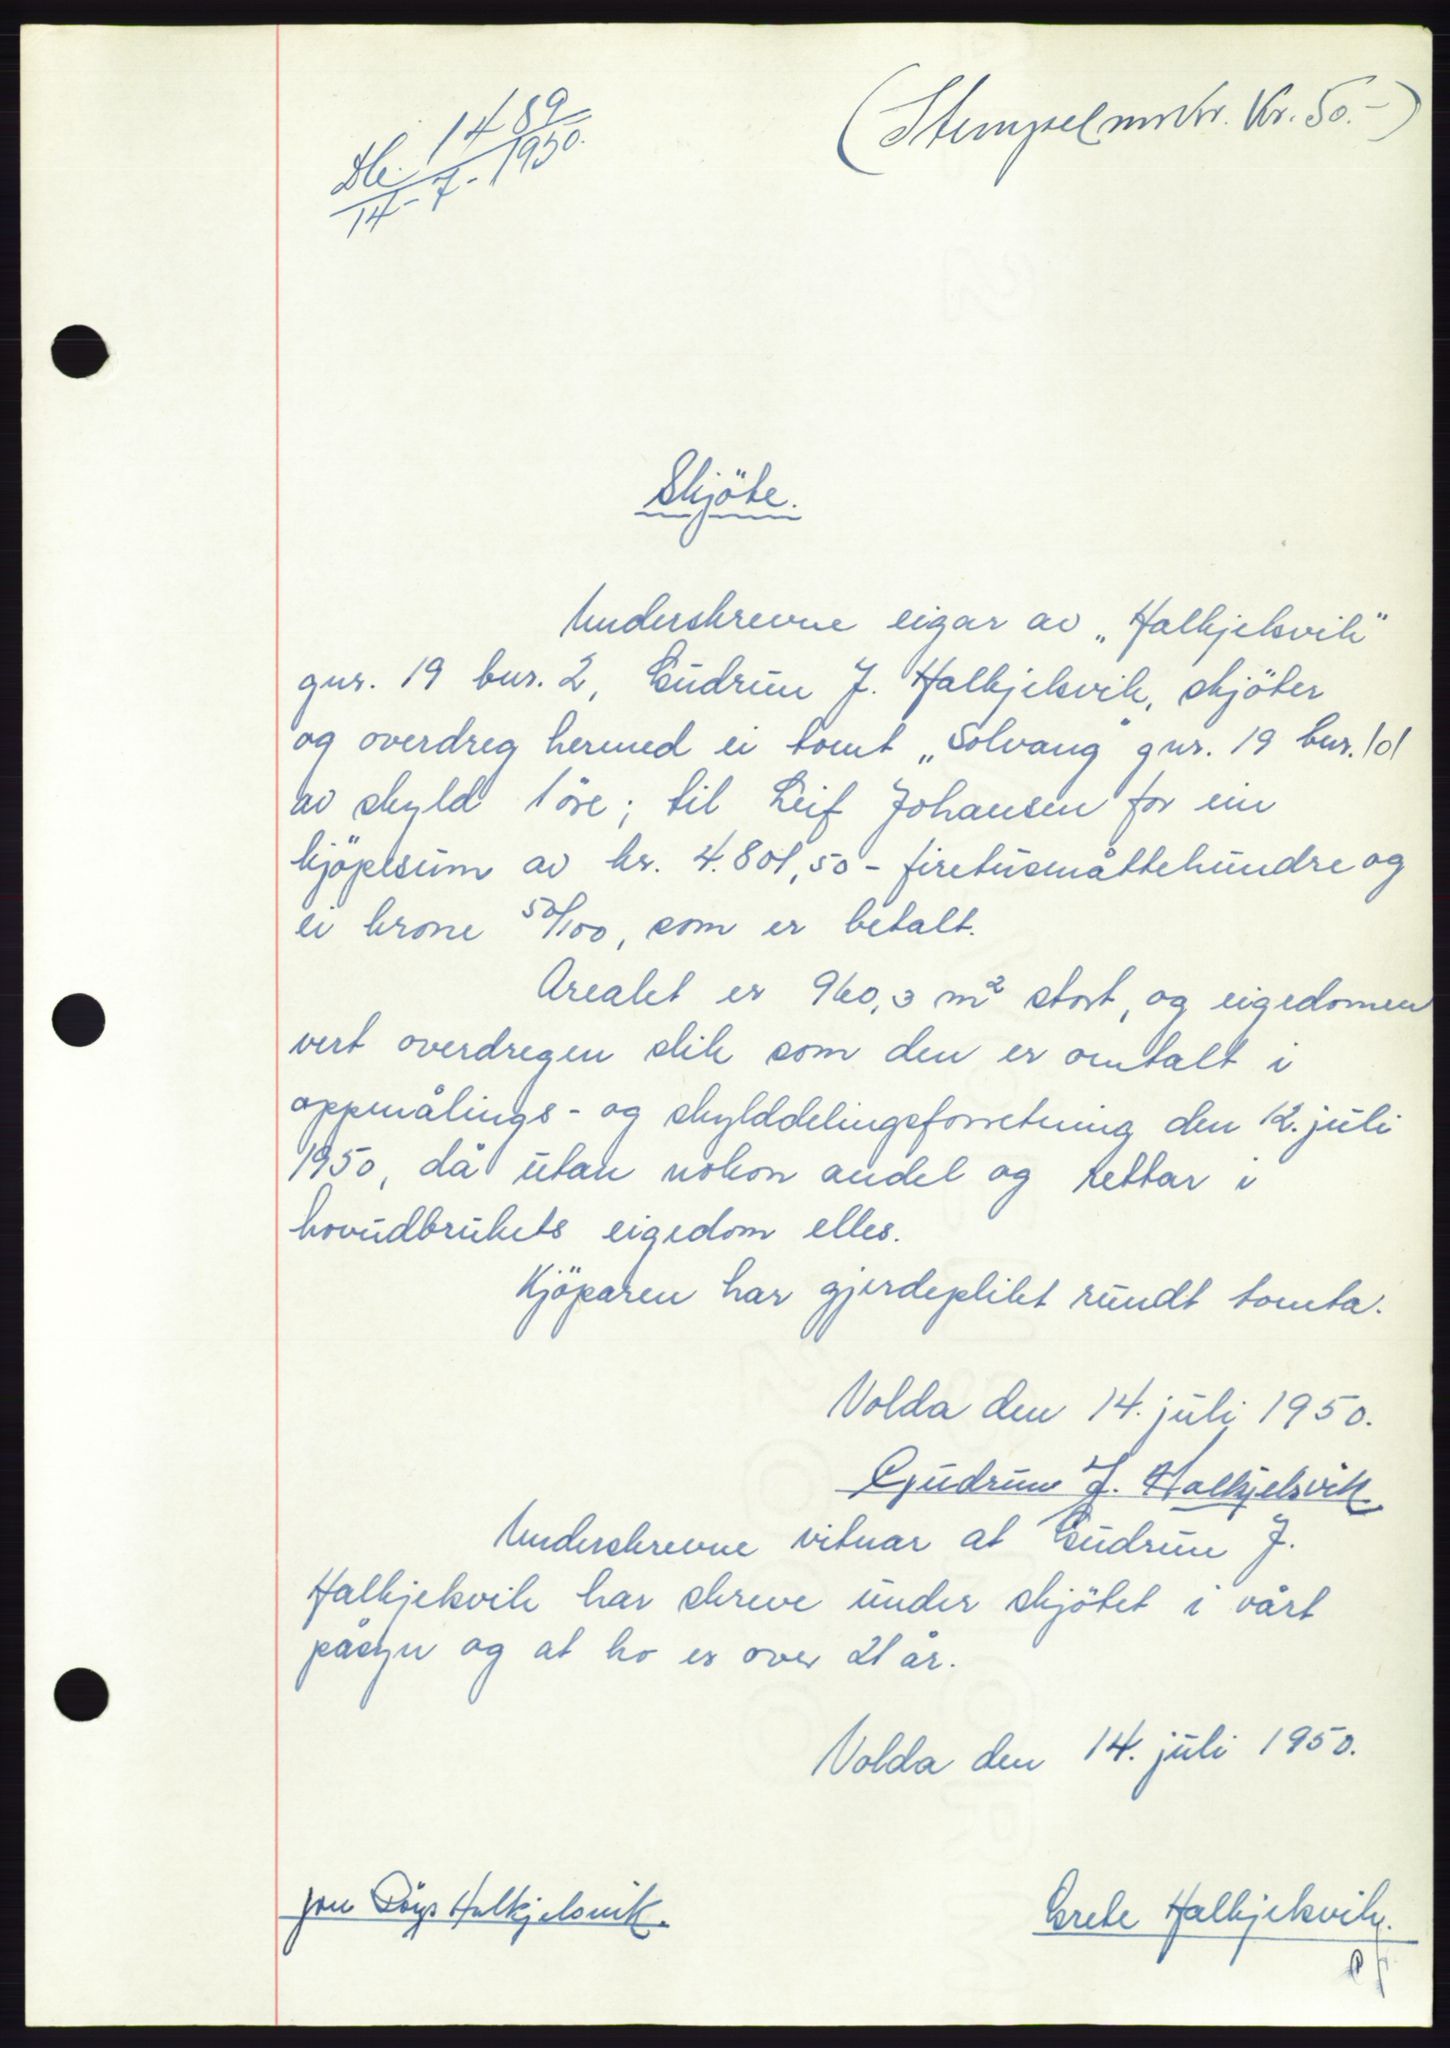 Db. 1489
14-7-1950.
(Stempelmrkr. Kr. 50.-)
Skjöte.
Underskrevne eigar av „Halkjelsvik"
gnr. 19 bnr. 2, Gudrun J. Halkjelsvik, skjöter
og overdreg hermed ei tomt „Solvang" gnr. 19 bnr. 101
av skyld 1 öre; til Leif Johansen for ein
kjöpesum av kr. 4.801,50 - firetusenåttehundre og
ei krone 50/100, som er betalt.
Arealet er 960,3 m² stort, og eigedomen
vert overdregen slik som den er omtalt i
oppmålings- og skylddelingsforretning den 12. juli
1950, då utan nokon andel og rettar i
hovudbrukets eigedom elles.
Kjöparen har gjerdeplikt rundt tomta.
Volda den 14. juli 1950.
Gudrun J. Halkjelsvik.
Underskrevne vitnar at Gudrun J.
Halkjelsvik har skreve under skjötet i vårt
påsyn og at ho er over 21 år.
Volda den 14. juli 1950.
Jon Halkjelsvik.
Grete Halkjelsvik.